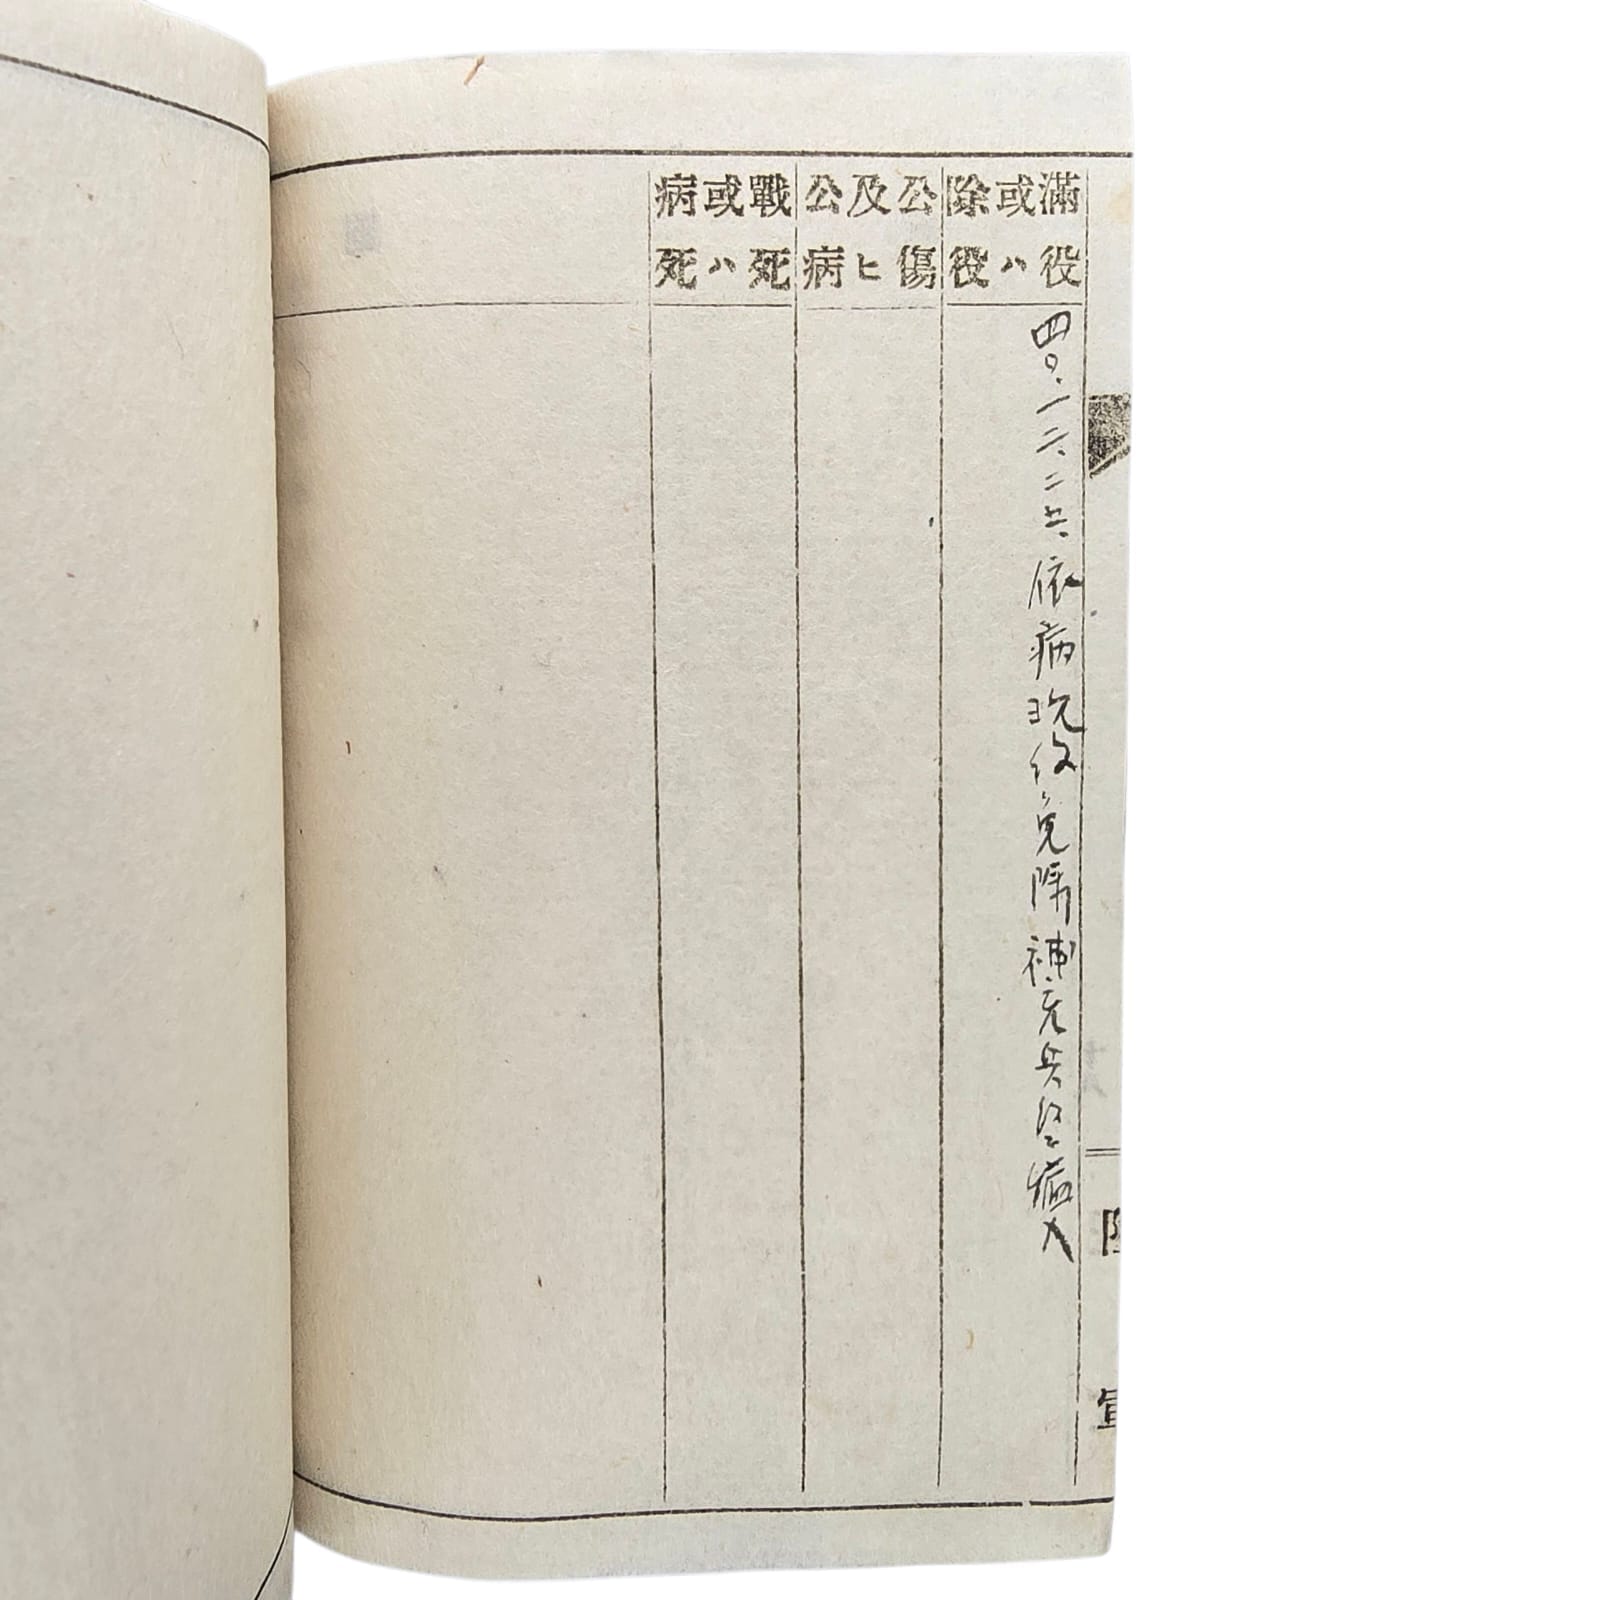 滿役
或ハ
除役
四〇、一二、二七、依病現役免除補充兵役編入
公傷
及ヒ
公病
戰死
或ハ
病死